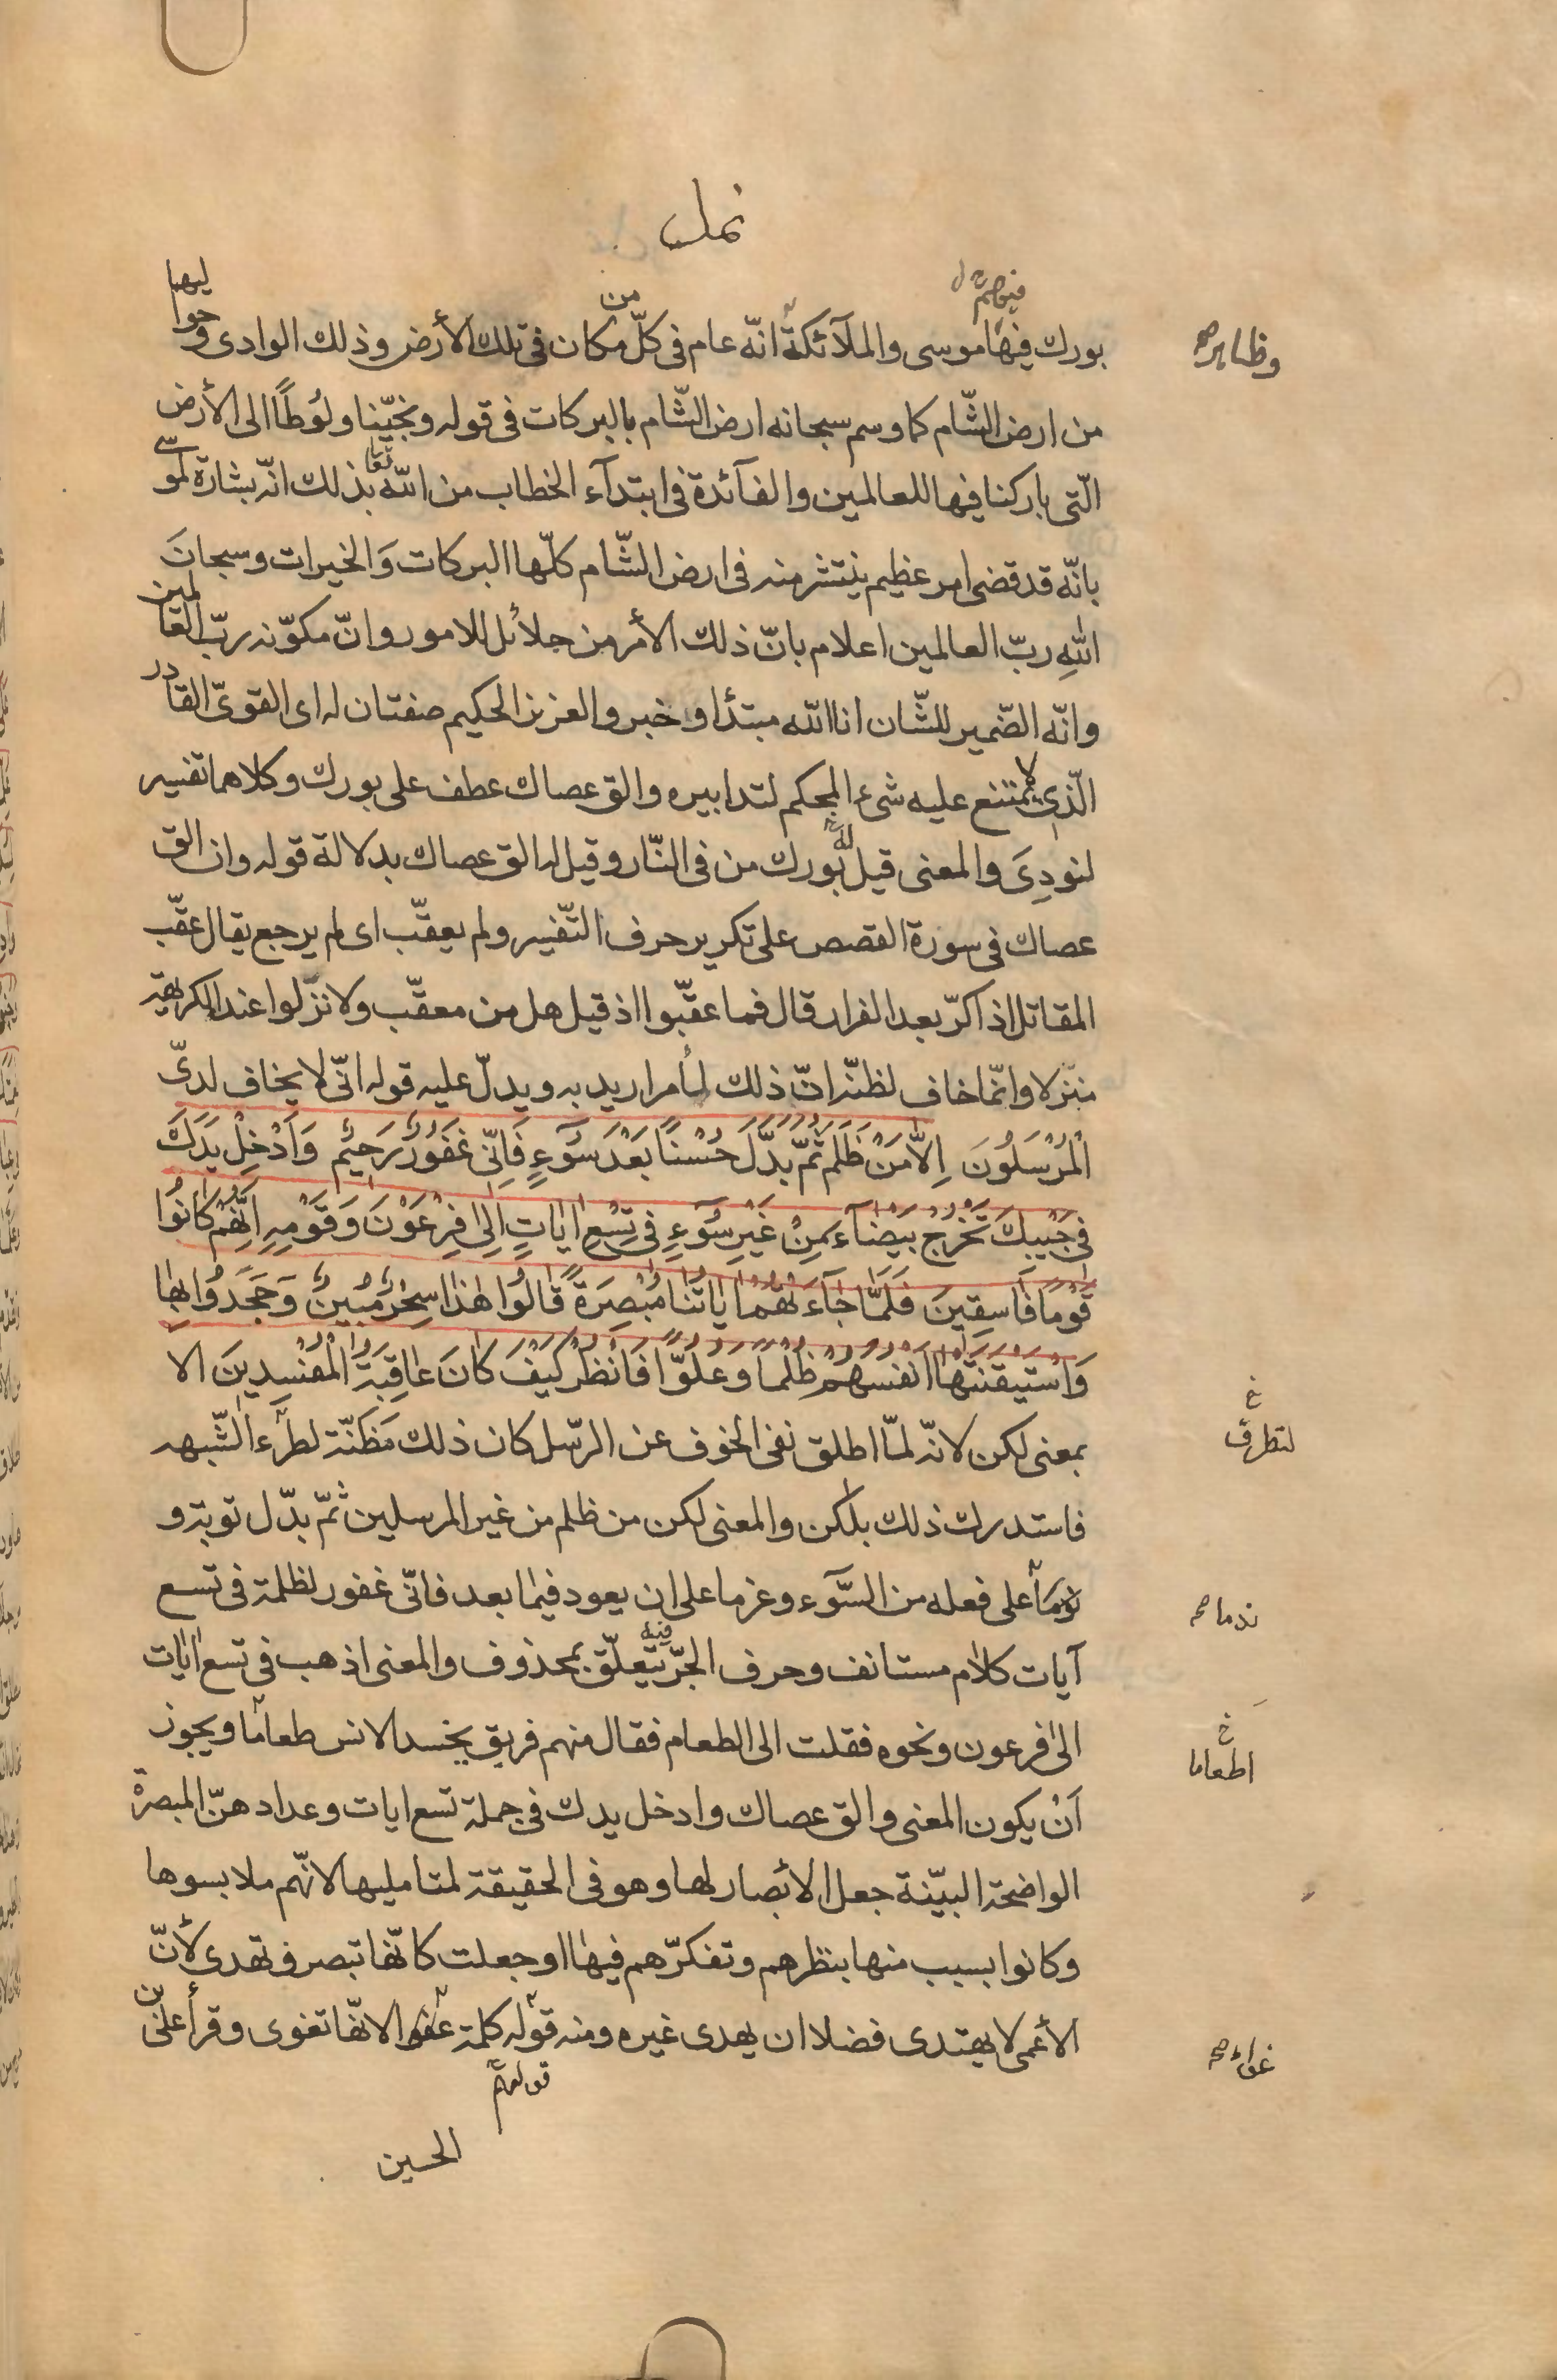 نمل
بورك فيها موسى والملآئكة انّه عام فى كلّ من مكان فى تلك الأرض وذلك الوادى وحواليها
وظاهره صح
من ارض الشّام كما وسم سبحانه ارض الشّام بالبركات فى قوله ونجّينا ولوُطًا الى الأرض
الّتى باركنا فيها للعالمين والفآئدة فى ابتدآء الخطاب من اللّه تعا بذلك انّه بشارة لموسى
بانّه قد قضى امر عظيم ينتشر منه فى ارض الشّام كلّها البركات وَالخيرات وسبحانَ
اللّهِ ربّ العالمين اعلام بانّ ذلك الأمر من جلائل الامور وانّ مكوّنه ربّ العالمين
وانّه الضّمير للشّان انا اللّه مبتدأ وخبر والعزيز الحكيم صفتان له اى القوىّ القادر
الّذى لا يمتنع عليه شىء المحكم لتدابيره والق عصاك عطف على بورك وكلاهما تفسير
لنودِىَ والمعنى قيل له بورك من فى النّار وقيل له الق عصاك بدلالة قوله وان الق
عصاك فى سورة القصص على تكرير حرف التّفسير ولم يعقّب اى لم يرجع يقال عقّب
المقاتل اذا كرّ بعد الفرار قال فما عقّبوا اذ قيل هل من معقّب ولا نزّلوا عند الكريهة
منزلا وانّما خاف لظنّه انّ ذلك لأمر اريد به ويدلّ عليه قوله انّى لا يخاف لدىّ
الْمُرْسَلُونَ اِلاَّ مَنْ ظَلَمَ ثُمَّ بَدَّلَ حُسْنًا بَعْدَ سُوءٍ فَاِنّى غَفُورٌ رَحيمٌ وَاَدْخِلْ يَدَكَ
فى جَيْبِكَ تَخْرُجْ بَيْضآءَ مِنْ غَيْرِ سُوءٍ فى تِسْعِ اياتٍ اِلى فِرْعَوْنَ وَقَوْمِهِ اِنَّهُمْ كانُوا
قَوْمًا فَاسِقينَ فَلَمّا جآءَتْهُمْ اياتُنا مُبْصِرَةً قالُوا هذا سِحْرٌ مُبينٌ وَجَحَدُوا بِها
وَاسْتَيْقَنَتْها اَنْفُسُهُمْ ظُلْمًا وَعُلُوًّا فَانْظُرْ كَيْفَ كانَ عاقِبَةُ الْمُفْسِدينَ الا
بمعنى لكن لانّه لمّا اطلق نفى الخوف عن الرّسل كان ذلك مَظنّة لطرء الشّبهه
لتطرق خ
فاستدرك ذلك بلكن والمعنى لكن من ظلم من غير المرسلين ثمّ بدّل توبة و
على فعله من السّوء وعزما على ان يعود فيما بعد فانّى غفور لظلمة فى تسع
ندما صح
آيات كلام مستانف وحرف الجرّ فيه يتعلّق بمحذوف والمعنى اذهب فى تسع ايات
الى فرعون ونحوه فقلت الى الطعام فقال منهم فريق يحسد الانس طعاما ويجوز
اطعاما خ
اَنْ يكون المعنى والق عصاك وادخل يدك فى جملة تسع ايات وعدادهنّ المبصرة
الواضحة البيّنة جعل الابصار لها وهو فى الحقيقة لمتامليها لانّهم ملابسوها
وكانوا بسبب منها بنظرهم وتفكّرهم فيها او جعلت كانّها تبصر فتهدى لأنّ
الأعمى لا يهتدى فضلا ان يهدى غيره ومنه قوله كلمة لانّها تغوى وقرأ علىّ بن
غواء صح
قولهم
الحسين